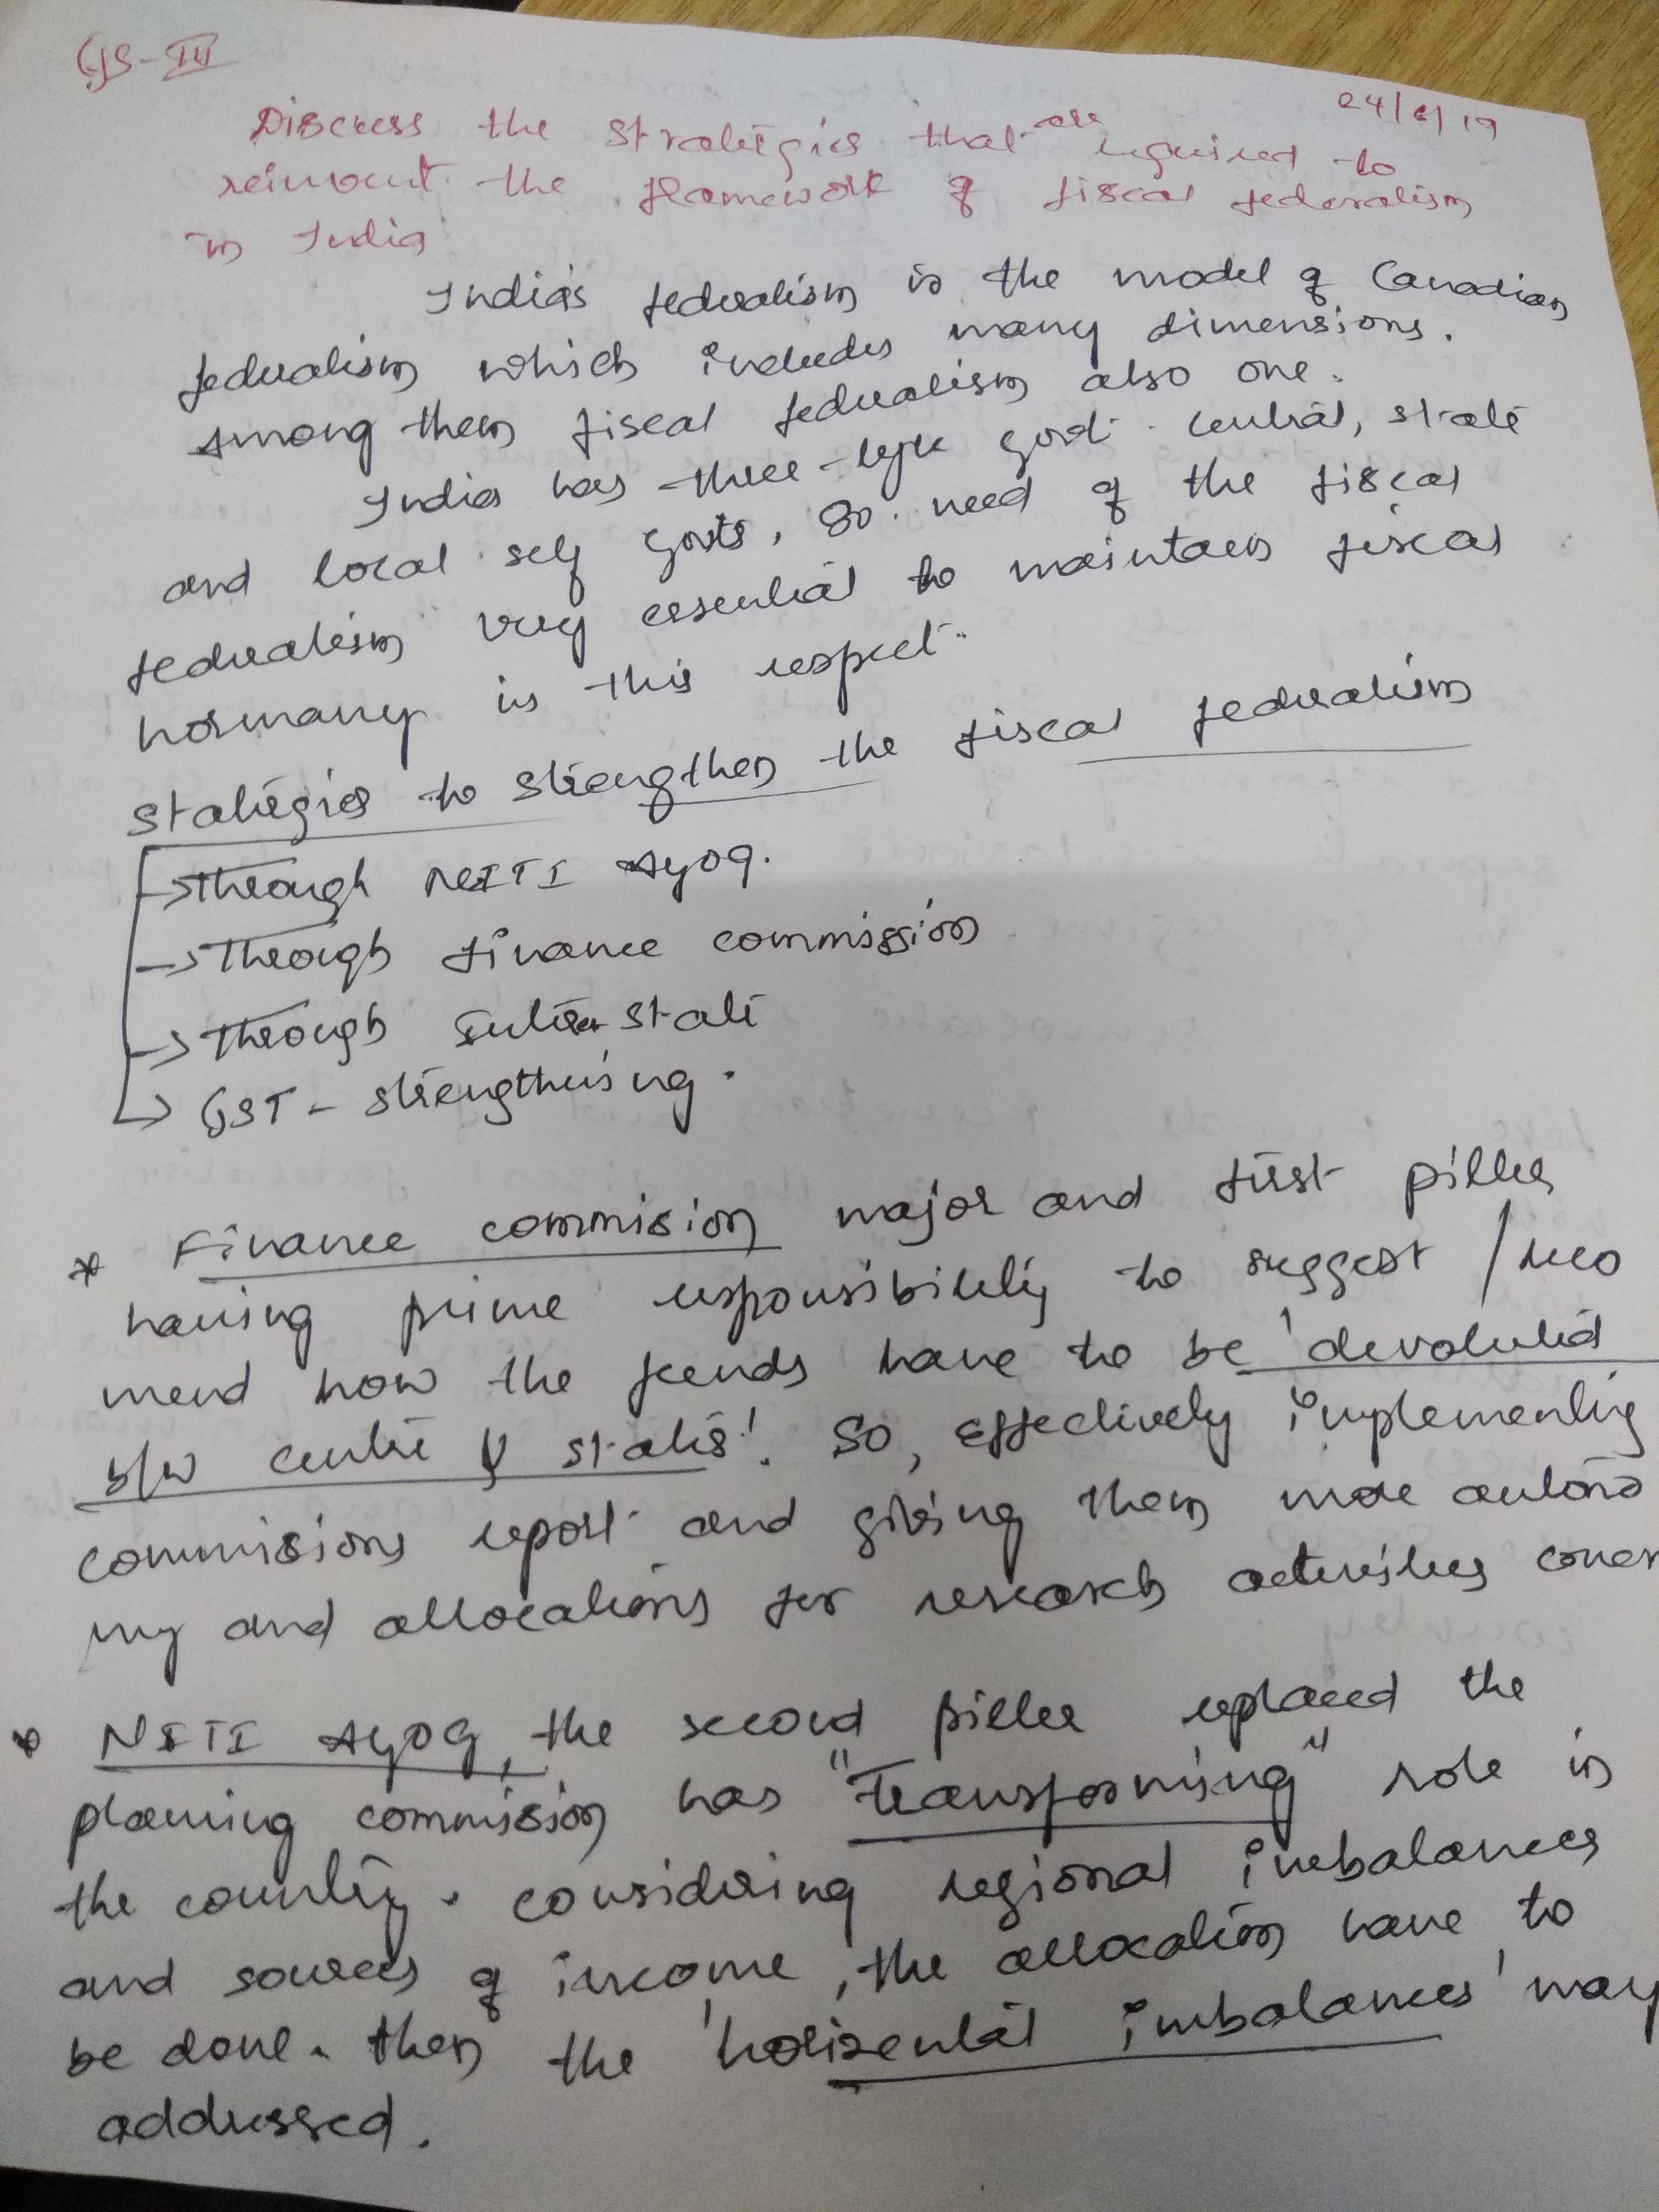 GS-III
24/6/19
Discuss the strategies that are required to
reinvent the framework of fiscal federalism
in India
India's federalism is the model of Canadian
federalism which includes many dimensions.
Among them fiscal federalism also one.
India has three-tyre govt. central, state
and local self govts, So need of the fiscal
federalism very essential to maintain fiscal
hormany in this respect.
Stategies to strengthen the fiscal federalism
→ Through NITI Ayog.
→ Through Finance commission
→ Through Inter state
→ GST - strengthening.
* Finance commision major and first piller
having prime responsibility to suggest / reco
mend how the funds have to be 'devoluted
b/w centre & states'. So, effectively implementing
commissions report and giving them more autono
my and allocations for research activities
* NITI Ayog, the second piller replaced the
planning commision has "Transforming" role in
the country. considering regional imbalances
and sources of income, the allocation have to
be done. then the 'horizental imbalances' may
addressed.